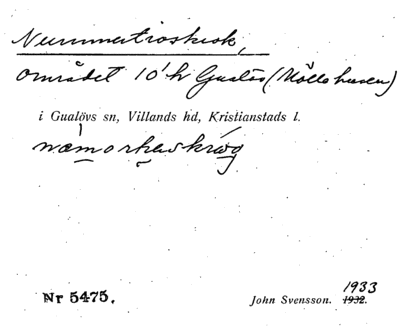 Nummertioskrok,
området 10' h Gualöv (Möllehusen)
i Gualövs sn, Villands hd, Kristianstads l.
Nr 5475.
1933
John Svensson. 1932.